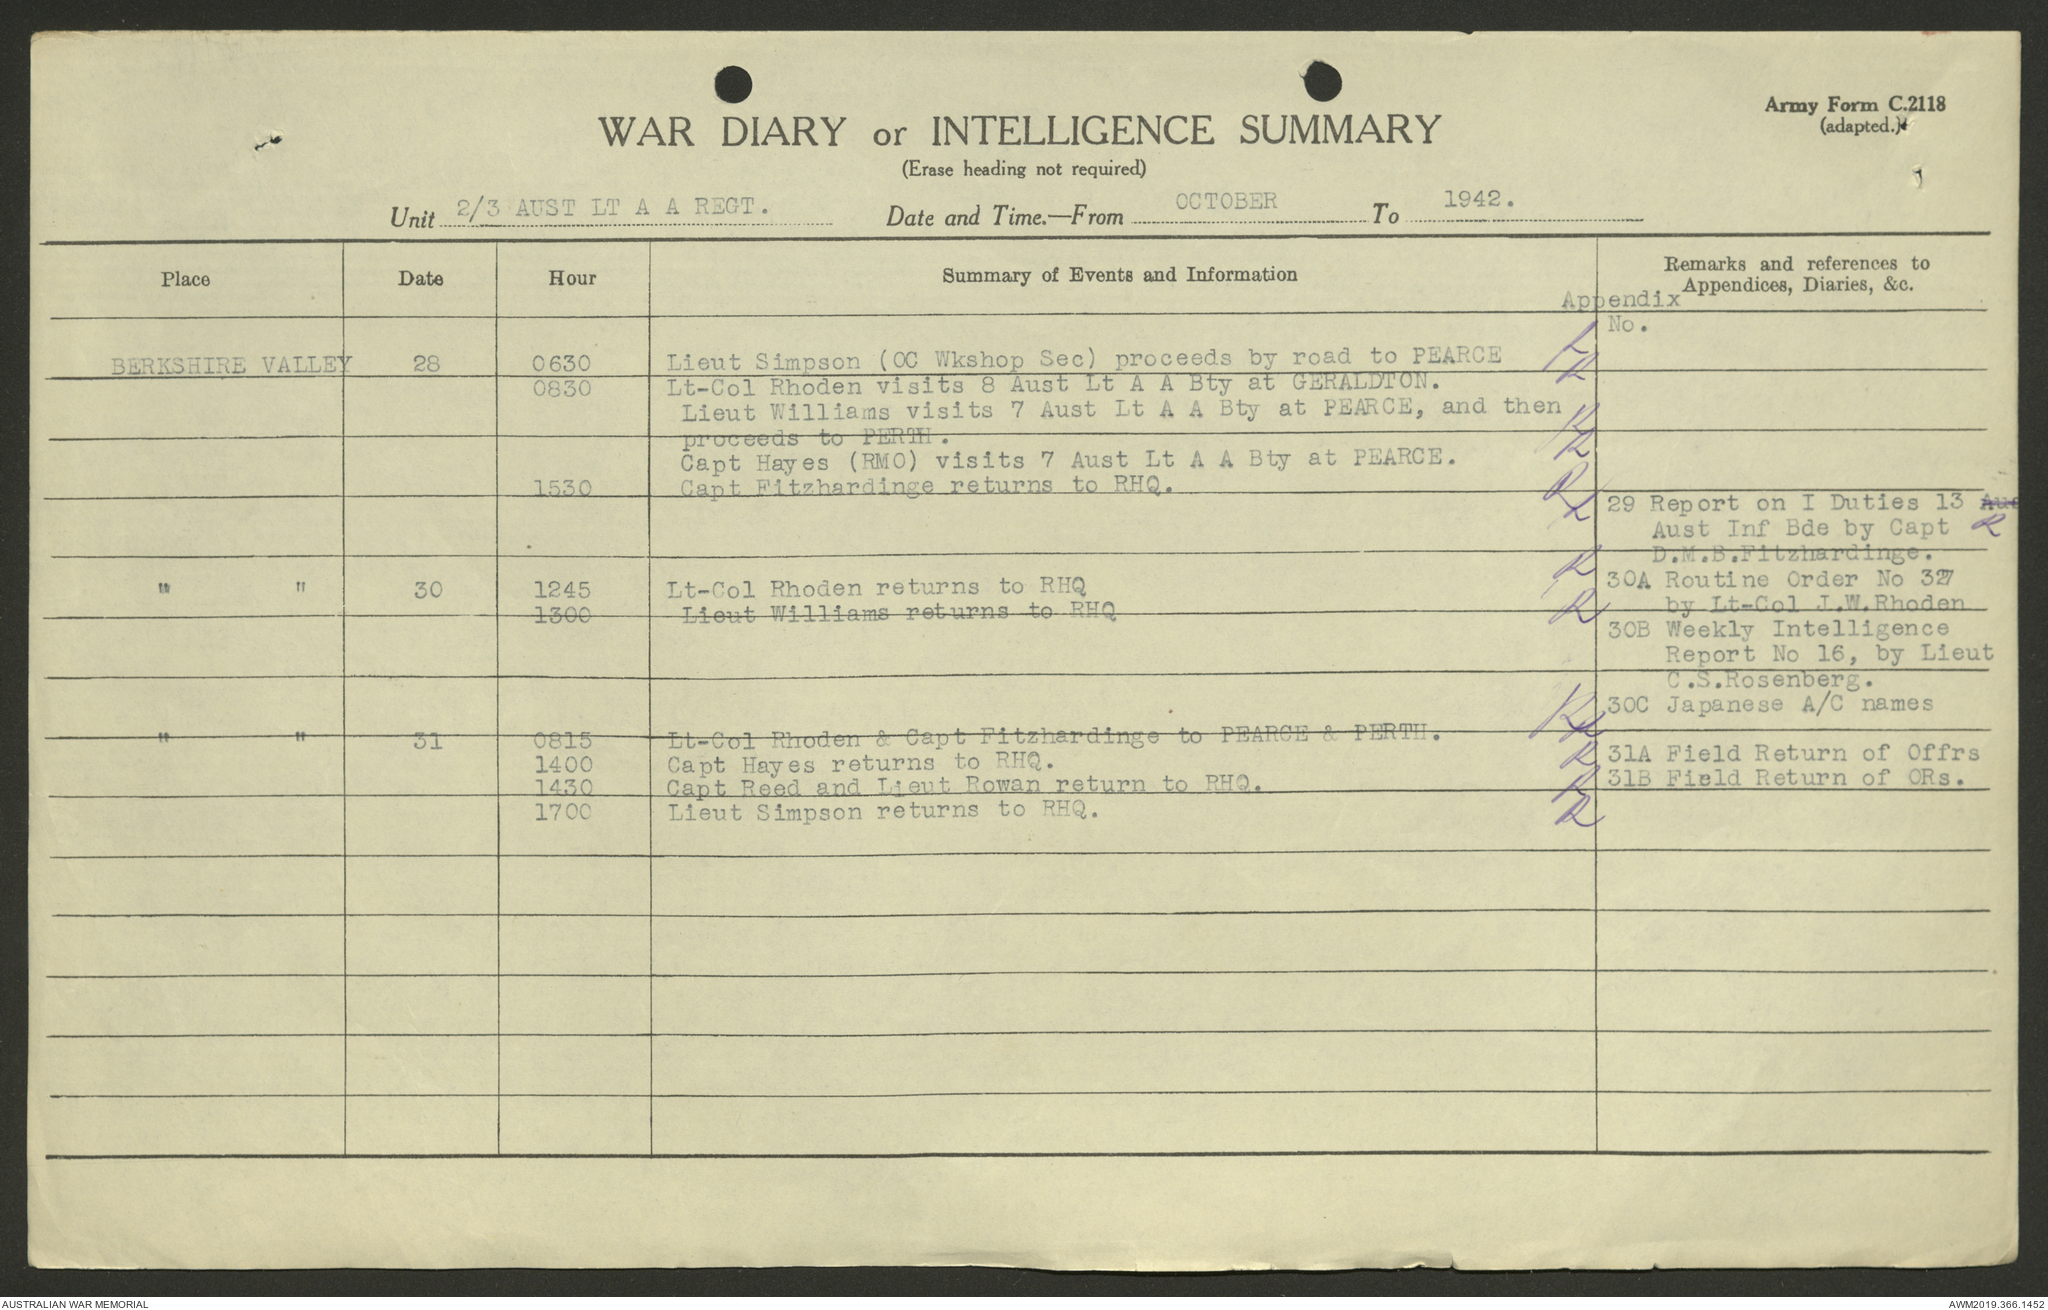 Army Form C.2118
(adapted.)
WAR DIARY or INTELLIGENCE SUMMARY
(Erase heading not required)
Unit 2/3 AUST LT A A REGT. Date and Time.—From OCTOBER To 1942.
Place Date Hour Summary of Events and Information Remarks and references to
Appendices, Diaries, &c.
Appendix
No.
BERKSHIRE VALLEY 28 0630 Lieut Simpson (OC Wkshop Sec) proceeds by road to PEARCE R
0830 Lt-Col Rhoden visits 8 Aust Lt A A Bty at GERALDTON. R
Lieut Williams visits 7 Aust Lt A A Bty at PEARCE, and then
proceeds to PERTH. R
Capt Hayes (RMO) visits 7 Aust Lt A A Bty at PEARCE. R
1530 Capt Fitzhardinge returns to RHQ. R
R
29 Report on I Duties 13 Aus
Aust Inf Bde by Capt R
D.M.B.Fitzhardinge.
" " 30 1245 Lt-Col Rhoden returns to RHQ R 30A Routine Order No 327
1300 Lieut Williams returns to RHQ R by Lt-Col J.W.Rhoden
30B Weekly Intelligence
Report No 16, by Lieut
C.S.Rosenberg.
30C Japanese A/C names
" " 31 0815 Lt-Col Rhoden & Capt Fitzhardinge to PEARCE & PERTH. R R
1400 Capt Hayes returns to RHQ. R 31A Field Return of Offrs
1430 Capt Reed and Lieut Rowan return to RHQ. R 31B Field Return of ORs.
1700 Lieut Simpson returns to RHQ. R
AUSTRALIAN WAR MEMORIAL AWM2019.366.1452